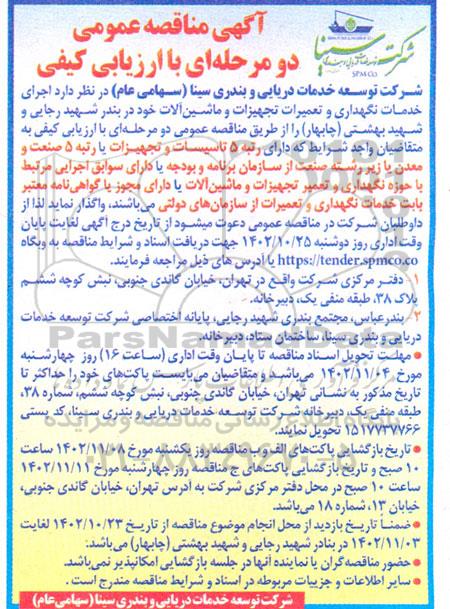 آگهی مناقصه عمومی
دو مرحله‌ای با ارزیابی کیفی
شرکت سینا
SPM.CO
شرکت توسعه خدمات دریایی و بندری سینا (سهامی عام) در نظر دارد اجرای
خدمات نگهداری و تعمیرات تجهیزات و ماشین‌آلات خود در بندر شهید رجایی و
شهید بهشتی (چابهار) را از طریق مناقصه عمومی دو مرحله‌ای با ارزیابی کیفی به
متقاضیان واجد شرایط که دارای رتبه ۵ تاسیسات و تجهیزات یا رتبه ۵ صنعت و
معدن یا زیر رشته صنعت از سازمان برنامه و بودجه یا دارای سوابق اجرایی مرتبط
با حوزه نگهداری و تعمیر تجهیزات و ماشین‌آلات یا دارای مجوز یا گواهی‌نامه معتبر
بابت خدمات نگهداری و تعمیرات از سازمان‌های دولتی می‌باشند، واگذار نماید لذا از
داوطلبان شرکت در مناقصه عمومی دعوت میشود از تاریخ درج آگهی لغایت پایان
وقت اداری روز دوشنبه ۱۴۰۲/۱۰/۲۵ جهت دریافت اسناد و شرایط مناقصه به وبگاه
https://tender.spmco.co یا آدرس های ذیل مراجعه فرمایند.
۱- دفتر مرکزی شرکت واقع در تهران، خیابان گاندی جنوبی، نبش کوچه ششم
پلاک ۳۸، طبقه منفی یک، دبیرخانه.
۲- بندرعباس، مجتمع بندری شهید رجایی، پایانه اختصاصی شرکت توسعه خدمات
دریایی و بندری سینا، ساختمان ستاد، دبیرخانه.
● مهلت تحویل اسناد مناقصه تا پایان وقت اداری (ساعت ۱۶) روز چهارشنبه
مورخ ۱۴۰۲/۱۱/۰۴ می‌باشد و متقاضیان می‌بایست پاکت‌های خود را حداکثر تا
تاریخ مذکور به نشانی تهران، خیابان گاندی جنوبی، نبش کوچه ششم، شماره ۳۸،
طبقه منفی یک، دبیرخانه شرکت توسعه خدمات دریایی و بندری سینا، کد پستی
۱۵۱۷۷۳۷۷۶۶ تحویل نمایند.
● تاریخ بازگشایی پاکت‌های الف و ب مناقصه روز یکشنبه مورخ ۱۴۰۲/۱۱/۰۸ ساعت
۱۰ صبح و تاریخ بازگشایی پاکت‌های ج مناقصه روز چهارشنبه مورخ ۱۴۰۲/۱۱/۱۱
ساعت ۱۰ صبح در محل دفتر مرکزی شرکت به آدرس تهران، خیابان گاندی جنوبی،
خیابان ۱۳، شماره ۱۸ می‌باشد.
● ضمنا تاریخ بازدید از محل انجام موضوع مناقصه از تاریخ ۱۴۰۲/۱۰/۲۳ لغایت
۱۴۰۲/۱۱/۰۳ در بنادر شهید رجایی و شهید بهشتی (چابهار) می‌باشد.
● حضور مناقصه‌گران یا نماینده آنها در جلسه بازگشایی امکانپذیر نمی‌باشد.
● سایر اطلاعات و جزییات مربوطه در اسناد و شرایط مناقصه مندرج است.
شرکت توسعه خدمات دریایی و بندری سینا (سهامی عام)